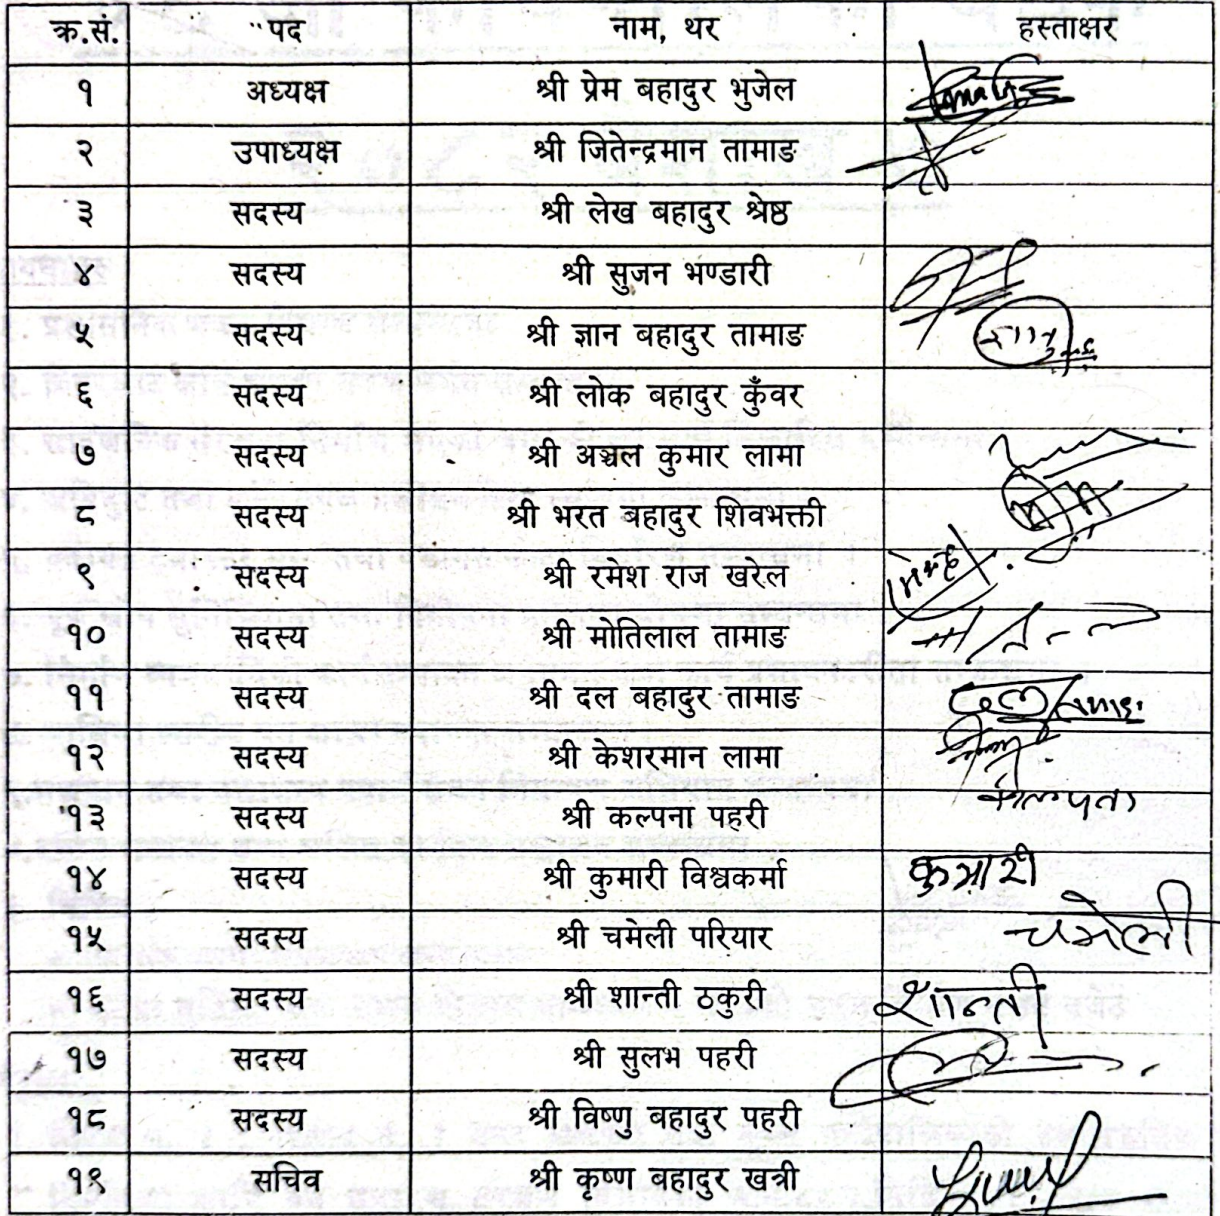 क्र.सं. पद नाम, थर हस्ताक्षर
१ अध्यक्ष श्री प्रेम बहादुर भुजेल
२ उपाध्यक्ष श्री जितेन्द्रमान तामाङ
३ सदस्य श्री लेख बहादुर श्रेष्ठ
४ सदस्य श्री सुजन भण्डारी
५ सदस्य श्री ज्ञान बहादुर तामाङ
६ सदस्य श्री लोक बहादुर कुँवर
७ सदस्य श्री अञ्चल कुमार लामा
८ सदस्य श्री भरत बहादुर शिवभक्ती
९ सदस्य श्री रमेश राज खरेल
१० सदस्य श्री मोतिलाल तामाङ
११ सदस्य श्री दल बहादुर तामाङ
१२ सदस्य श्री केशरमान लामा
१३ सदस्य श्री कल्पना पहरी कल्पना
१४ सदस्य श्री कुमारी विश्वकर्मा कुमारी
१५ सदस्य श्री चमेली परियार चमेली
१६ सदस्य श्री शान्ती ठकुरी शान्ती
१७ सदस्य श्री सुलभ पहरी
१८ सदस्य श्री विष्णु बहादुर पहरी
१९ सचिव श्री कृष्ण बहादुर खत्री